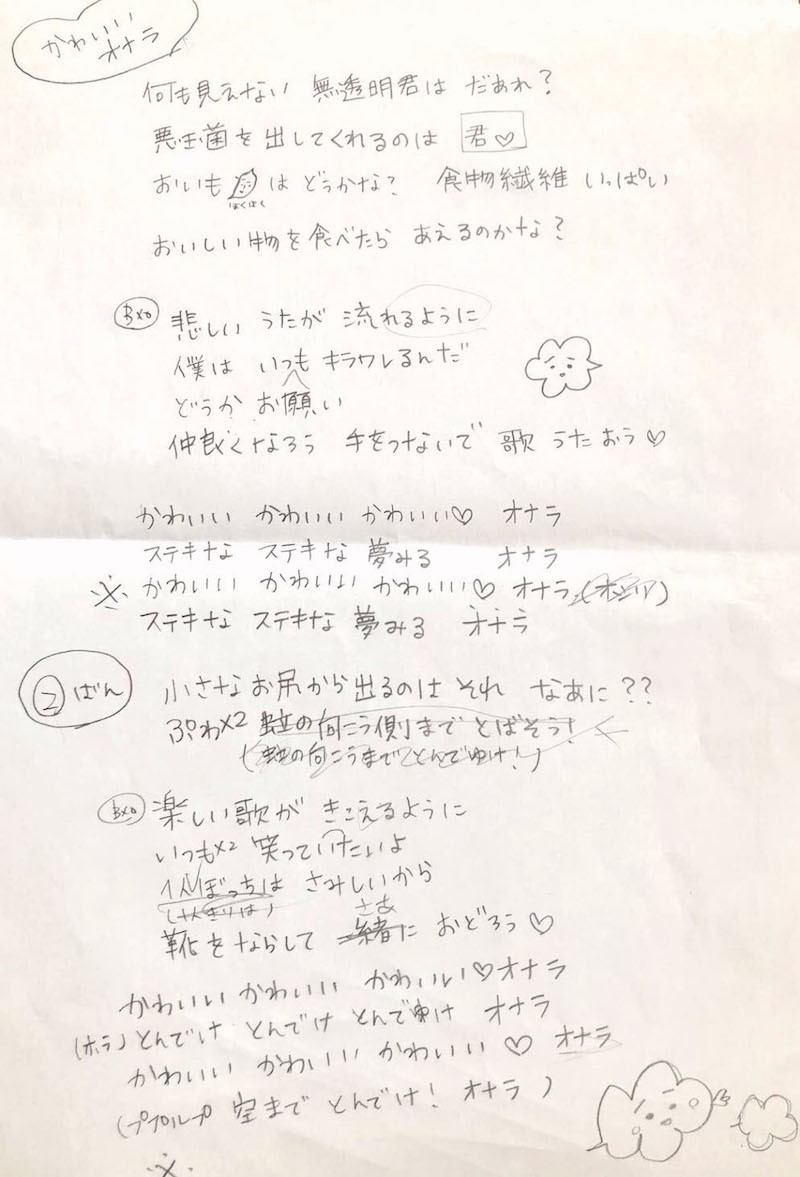 かわいい
オナラ
何も見えない 無透明君は だあれ?
悪玉菌を出してくれるのは 君♡
おいも は どうかな? 食物繊維 いっぱい
ほくほく
おいしい物を食べたら あえるのかな?
悲しい うたが 流れるように
僕は いつも キラワレるんだ
どうか お願い
仲良くなろう 手をつないで 歌 うたおう♡
かわいい かわいい かわいい♡ オナラ
ステキな ステキな 夢みる オナラ
※ かわいい かわいい かわいい♡ オナラ
ステキな ステキな 夢みる オナラ
②ばん 小さな お尻から 出るのは それ なあに??
ぷわ×2 虹の向こう側まで とばそう!
(虹の向こうまで とんでゆけ!)
楽しい歌が きこえるように
いつも×2 笑っていたいよ
1人ぼっちは さみしいから
さあ
靴をならして 緒に おどろう♡
かわいい かわいい かわいい♡オナラ
(ホラ) とんでけ とんでけ とんでゆけ オナラ
かわいい かわいい かわいい ♡ オナラ
(ププルプ 空まで とんでけ! オナラ)
※